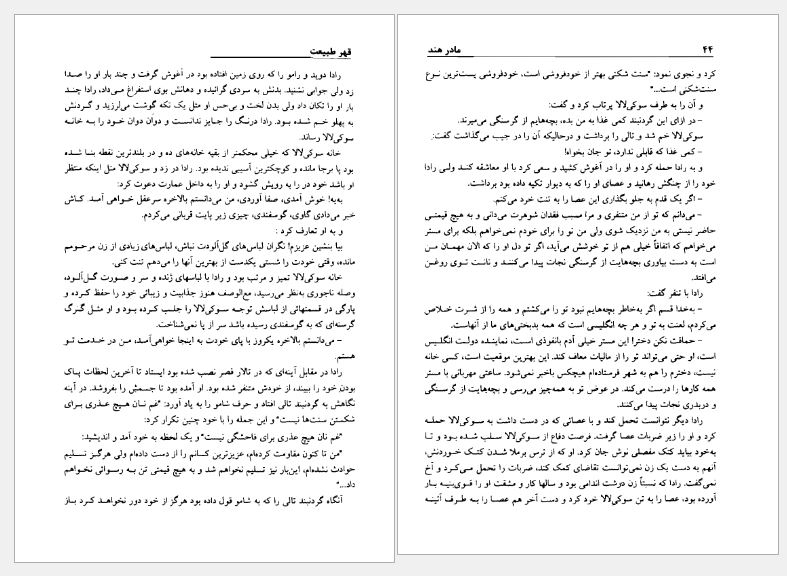 قهر طبیعت
رادا دوید و رامو را که روی زمین افتاده بود در آغوش گرفت و چند بار او را صدا
زد ولی جوابی نشنید. بدنش به سردی گرائیده و دهانش بوی استفراغ می‌داد، رادا چند
بار او را تکان داد ولی بدن لخت و بی‌حس او مثل یک تکه گوشت می‌لرزید و گردنش
به پهلو خم شده بود. رادا درنگ را جایز ندانست و دوان دوان خود را به خانه
سوکی‌لالا رساند.
خانه سوکی‌لالا که خیلی محکمتر از بقیه خانه‌های ده و در بلندترین نقطه بنا شده
بود پا برجا مانده و کوچکترین آسیبی ندیده بود. رادا در زد و سوکی‌لالا مثل اینکه منتظر
او باشد خود در را به رویش گشود و او را به داخل عمارت دعوت کرد:
به‌به! خوش آمدی، صفا آوردی، من می‌دانستم بالاخره سرعقل خواهی آمد. کاش
خبر می‌دادی گاوی، گوسفندی، چیزی زیر پایت قربانی می‌کردم.
و به او تعارف کرد :
بیا بنشین عزیزم! نگران لباس‌های گل‌آلودت نباش، لباس‌های زیادی از زن مرحومم
مانده، وقتی خودت را شستی یکدست از بهترین آنها را می‌دهم تنت کنی.
خانه سوکی‌لالا تمیز و مرتب بود و رادا با لباسهای ژنده و سر و صورت گل‌آلود،
وصله ناجوری به‌نظر می‌رسید، مع‌الوصف هنوز جذابیت و زیبائی خود را حفظ کرده و
پارگی در قسمتهائی از لباسش توجه سوکی‌لالا را جلب کرده بود و او مثل گرگ
گرسنه‌ای که به گوسفندی رسیده باشد سر از پا نمی‌شناخت.
- می‌دانستم بالاخره یکروز با پای خودت به اینجا خواهی‌آمد، من در خدمت تو
هستم.
رادا در مقابل آینه‌ای که در تالار قصر نصب شده بود ایستاد تا آخرین لحظات پاک
بودن خود را ببیند، از خودش متنفر شده بود. او آمده بود تا جسمش را بفروشد. در آینه
نگاهش به گردنبند تالی افتاد و حرف شامو را به یاد آورد: "غم نان هیچ عذری برای
شکستن سنت‌ها نیست" و این جمله را با خود چنین تکرار کرد:
"غم نان هیچ عذری برای فاحشگی نیست" و یک لحظه به خود آمد و اندیشید:
"من تا کنون مقاومت کرده‌ام، عزیزترین کسانم را از دست داده‌ام ولی هرگز تسلیم
حوادث نشده‌ام، این‌بار نیز تسلیم نخواهم شد و به هیچ قیمتی تن به رسوائی نخواهم
داد..."
آنگاه گردنبند تالی را که به شامو قول داده بود هرگز از خود دور نخواهد کرد باز
۴۴
مادر هند
کرد و نجوی نمود: "سنت شکنی بهتر از خودفروشی است، خودفروشی پست‌ترین نوع
سنت‌شکنی است..."
و آن را به طرف سوکی‌لالا پرتاب کرد و گفت:
- در ازای این گردنبند کمی غذا به من بده، بچه‌هایم از گرسنگی می‌میرند.
سوکی‌لالا خم شد و تالی را برداشت و درحالیکه آن را در جیب می‌گذاشت گفت:
- کمی غذا که قابلی ندارد، تو جان بخواه!
و به رادا حمله کرد و او را در آغوش کشید و سعی کرد با او معاشقه کند ولی رادا
خود را از چنگش رهانید و عصای او را که به دیوار تکیه داده بود برداشت.
- اگر یک قدم به جلو بگذاری این عصا را به تنت خرد می‌کنم.
- می‌دانم که تو از من متنفری و مرا مسبب فقدان شوهرت می‌دانی و به هیچ قیمتی
حاضر نیستی به من نزدیک شوی ولی من تو را برای خودم نمی‌خواهم بلکه برای مستر
می‌خواهم که اتفاقاً خیلی هم از تو خوشش می‌آید، اگر تو دل او را که الان مهمان من
است به دست بیاوری بچه‌هایت از گرسنگی نجات پیدا می‌کنند و نانت توی روغن
می‌افتد.
رادا با تنفر گفت:
- به‌خدا قسم اگر به‌خاطر بچه‌هایم نبود تو را می‌کشتم و همه را از شرت خلاص
می‌کردم، لعنت به تو و هر چه انگلیسی است که همه بدبختی‌های ما از آنهاست.
- حماقت نکن دختر! این مستر خیلی آدم بانفوذی است، نماینده دولت انگلیس
است، او حتی می‌تواند تو را از مالیات معاف کند. این بهترین موقعیت است، کسی خانه
نیست، دخترم را هم به شهر فرستاده‌ام هیچکس باخبر نمی‌شود. ساعتی مهربانی با مستر
همه کارها را درست می‌کند. در عوض تو به همه‌چیز می‌رسی و بچه‌هایت از گرسنگی
و دربدری نجات پیدا می‌کنند.
رادا دیگر نتوانست تحمل کند و با عصائی که در دست داشت به سوکی‌لالا حمله
کرد و او را زیر ضربات عصا گرفت. فرصت دفاع از سوکی‌لالا سلب شده بود و تا
به‌خود بیاید کتک مفصلی نوش جان کرد. او که از ترس برملا شدن کتک خوردنش،
آنهم به دست یک زن نمی‌توانست تقاضای کمک کند، ضربات را تحمل می‌کرد و آخ
نمی‌گفت. رادا که نسبتاً زن درشت اندامی بود و سالها کار و مشقت او را قوی‌بنیه بار
آورده بود، عصا را به تن سوکی‌لالا خرد کرد و دست آخر هم عصا را به طرف آئینه